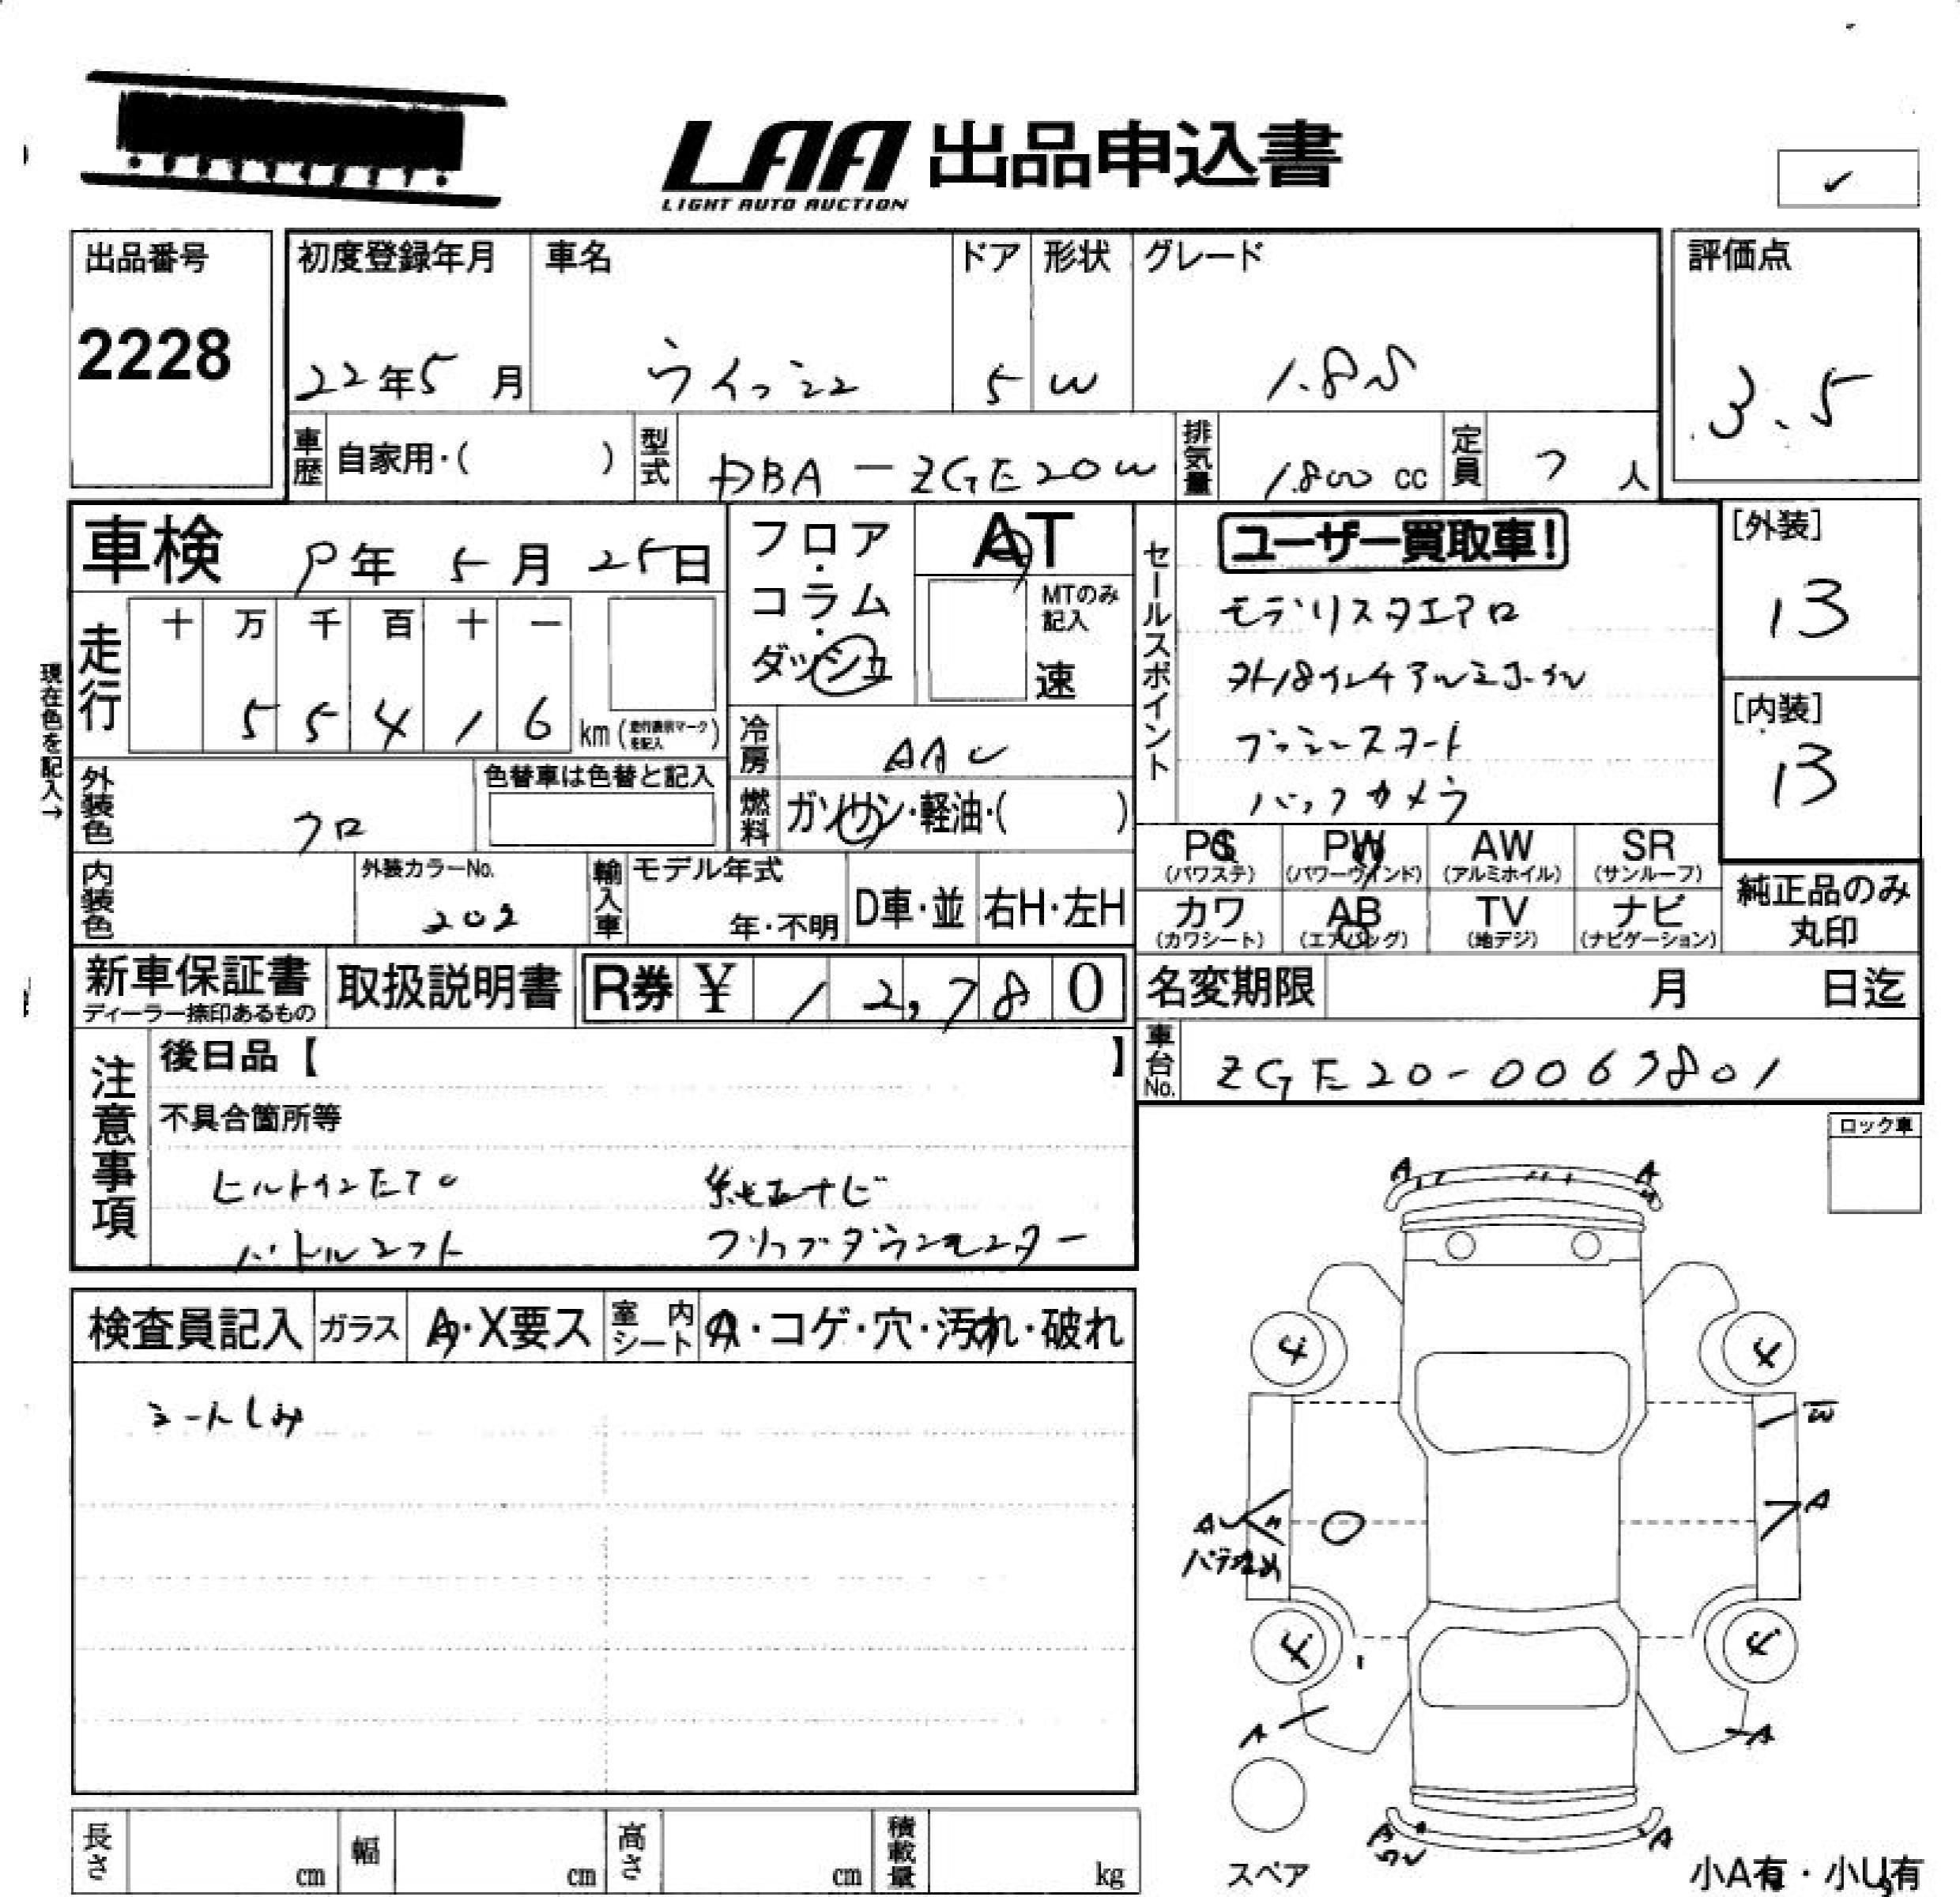 LAA 出品申込書
LIGHT AUTO AUCTION
✓
出品番号
2228
初度登録年月
22年5月
車名
ウィッシュ
ドア
5
形状
W
グレード
1.8S
評価点
3.5
車歴 自家用・( )
型式 DBA-ZGE20W
排気量 1800 cc
定員 7 人
車検 9年 5月 25日
走行
十 万 千 百 十 一
5 5 4 1 6 km
現在色を記入→
フロア・コラム・ダッシュ
AT
MTのみ記入
速
冷房 AAC
燃料 ガソリン・軽油・( )
外装色 クロ
色替車は色替と記入
内装色
外装カラーNo.
202
輸入車
モデル年式
年・不明
D車・並
右H・左H
セールスポイント
ユーザー買取車!
モデリスタエアロ
外18インチアルミホイル
プッシュスタート
バックカメラ
[外装]
13
[内装]
13
PS (パワステ)
PW (パワーウインド)
AW (アルミホイル)
SR (サンルーフ)
カワ (カワシート)
AB (エアバッグ)
TV (地デジ)
ナビ (ナビゲーション)
純正品のみ丸印
新車保証書
ディーラー捺印あるもの
取扱説明書
R券 ¥ 1 2,7 8 0
名変期限 月 日迄
車台No. ZGE20-0067801
注意事項
後日品【 】
不具合箇所等
ビルトインETC 純正ナビ
パドルシフト フリップダウンモニター
ロック車
検査員記入
ガラス A・X要ス
室内シート A・コゲ・穴・汚れ・破れ
シートしみ
A
A
4
4
W
A
AU
パテ埋め
4
4
A
A
A
A
スペア
小A有・小U有
長さ cm
幅 cm
高さ cm
積載量 kg